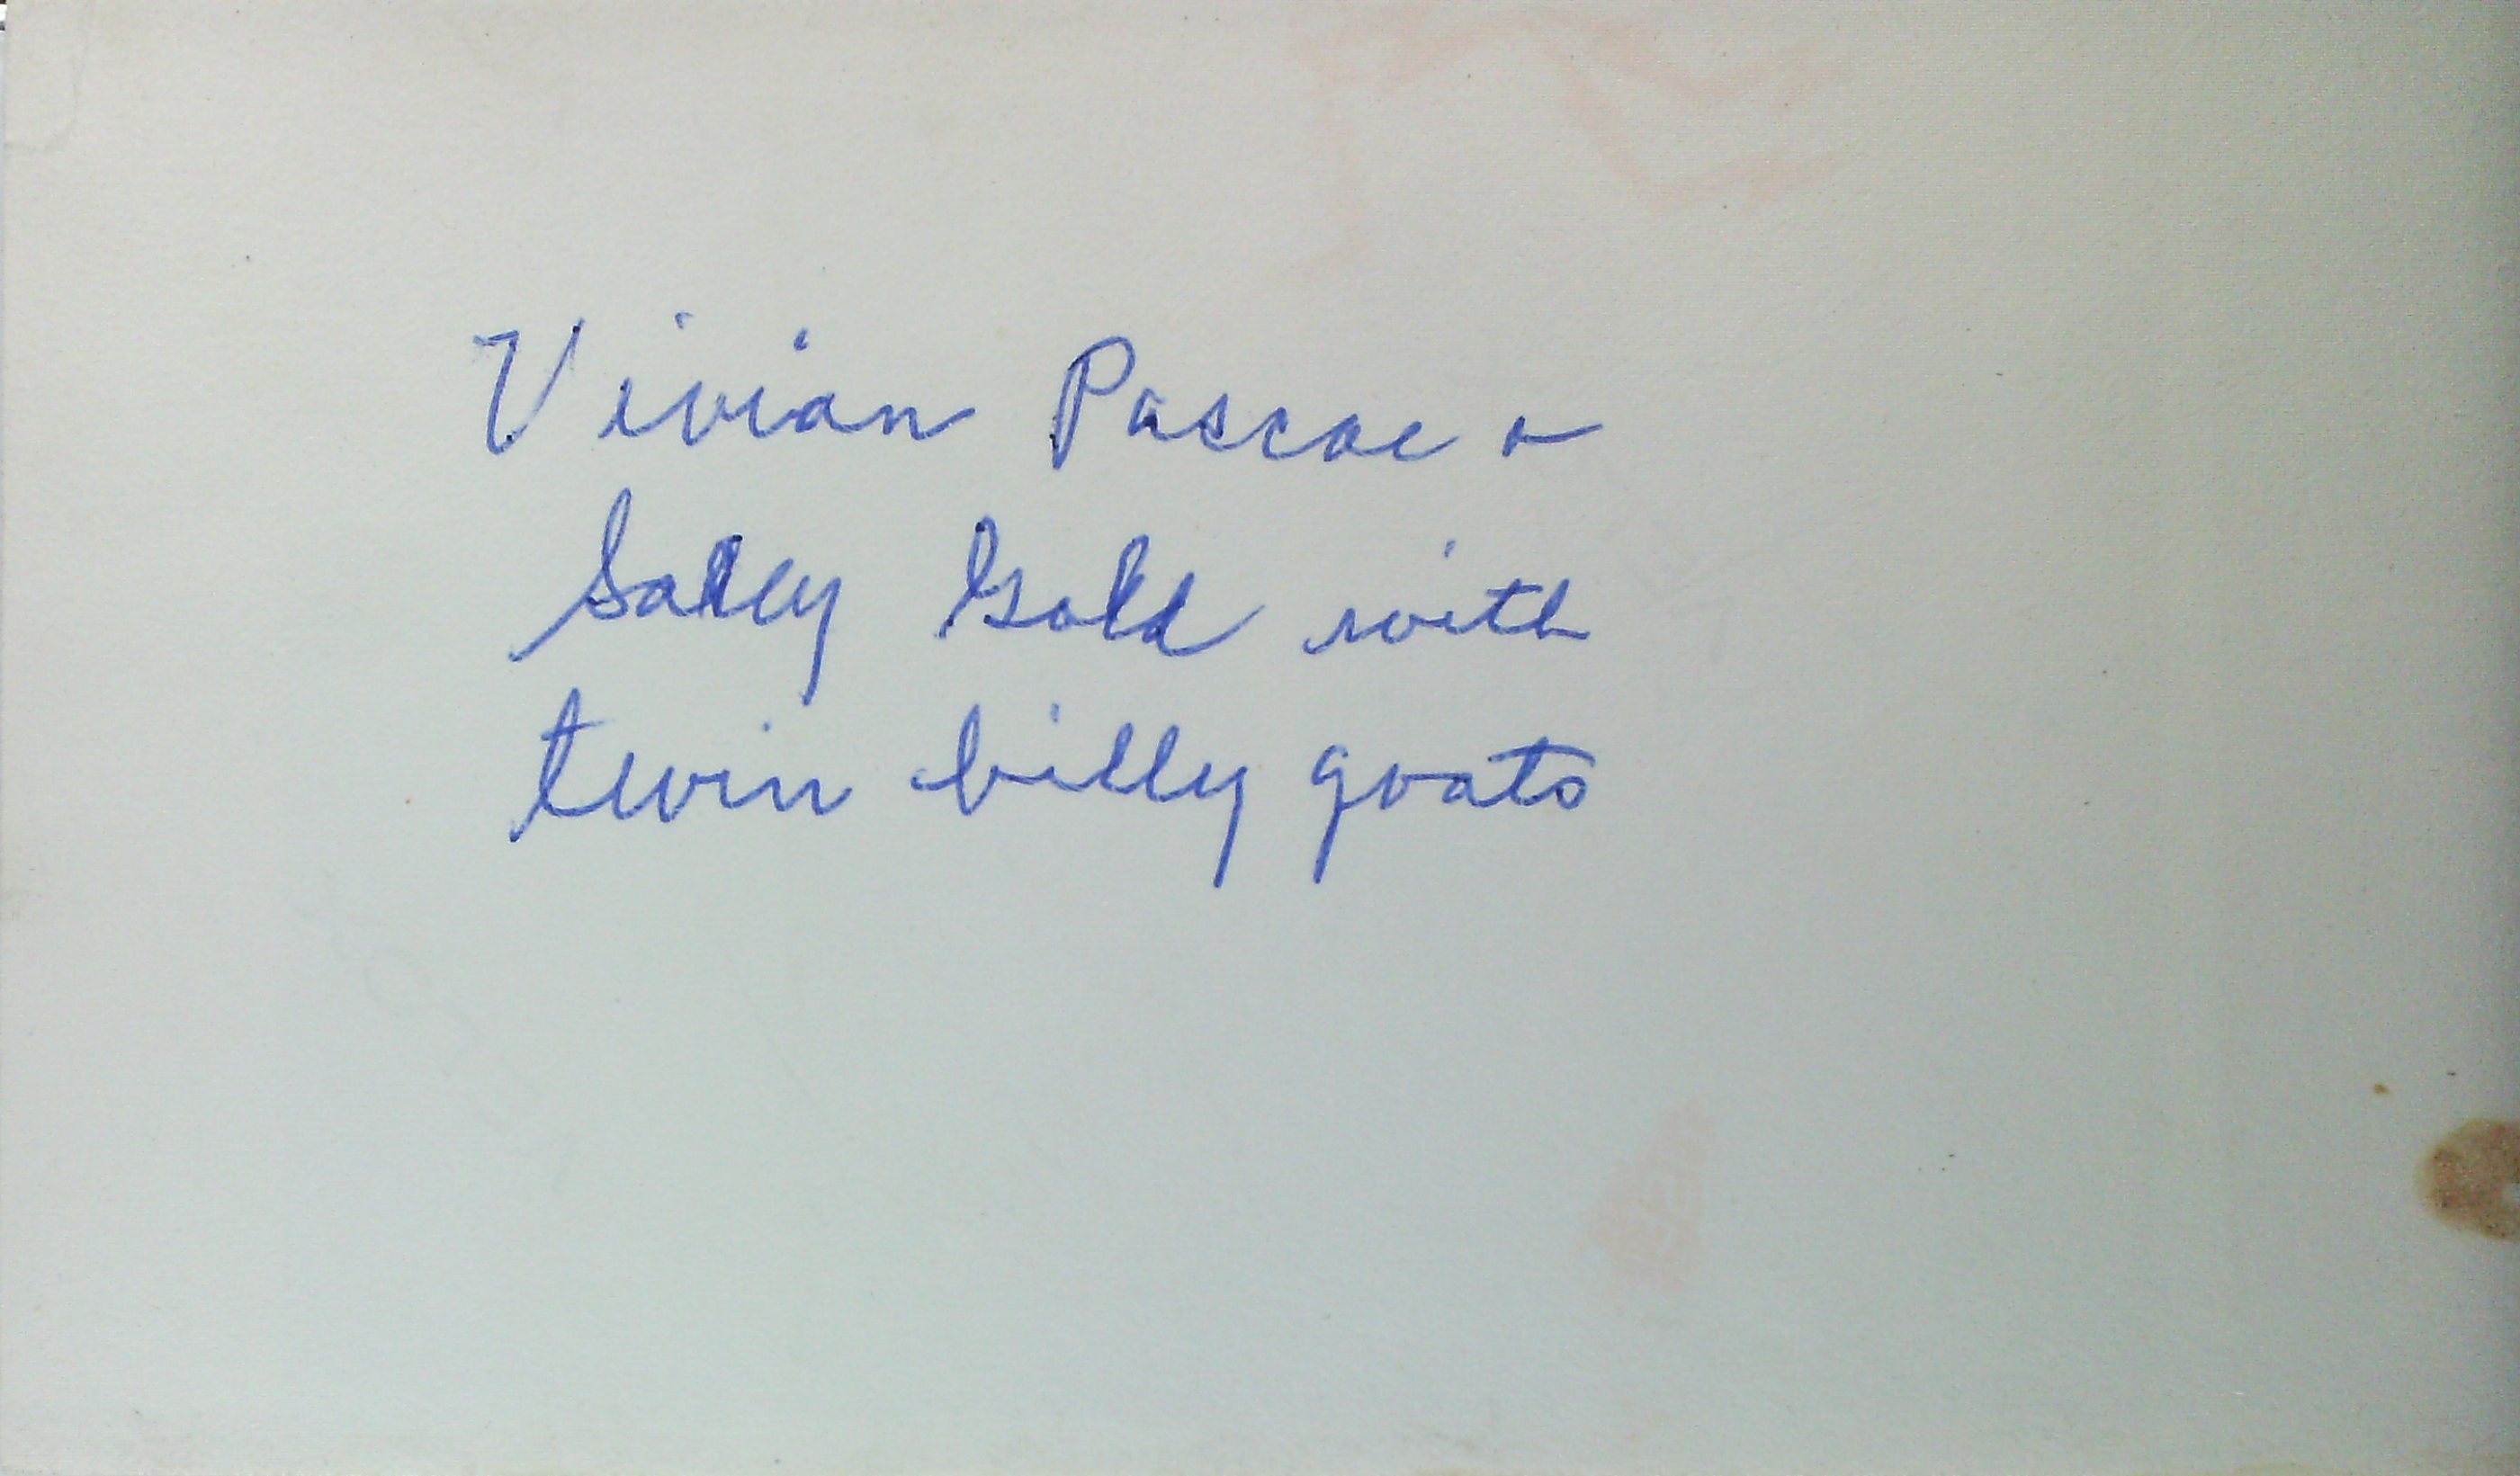 Vivian Pascoe &
Sally Gold with
twin billy goats